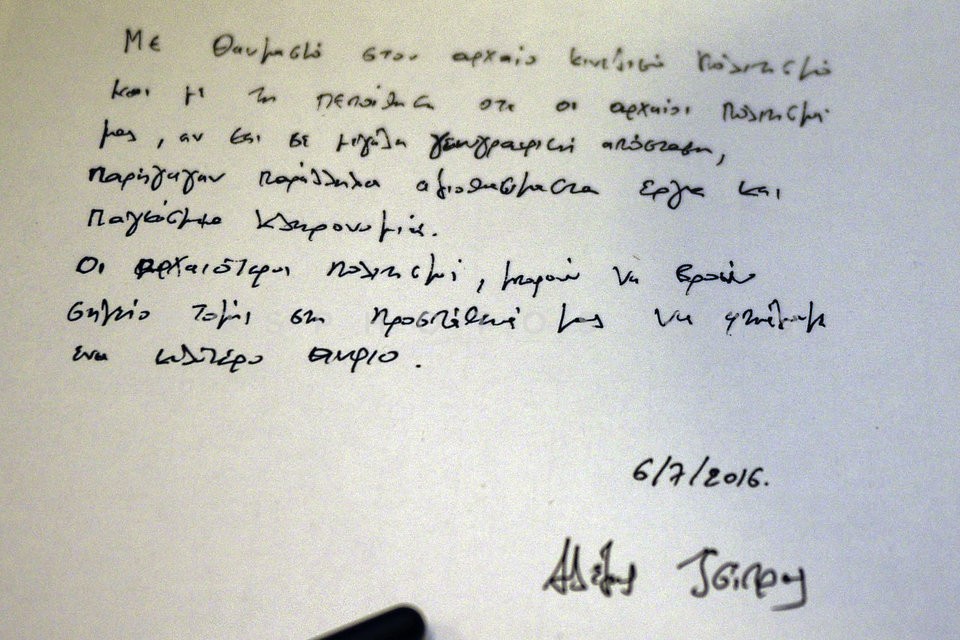 Με θαυμασμό στον αρχαίο κινεζικό πολιτισμό
και με τη πεποίθηση οτι οι αρχαίοι πολιτισμοί
μας, αν και σε μεγάλη γεωγραφική απόσταση,
παρήγαγαν παράλληλα αξιοθαύμαστα έργα και
παγκόσμια κληρονομιά.
Οι αρχαιότεροι πολιτισμοί, μπορούν να βρούν
σημείο τομής στη προσπάθειά μας να φτιάξουμε
ένα καλύτερο αύριο.
6/7/2016.
Αλέξης Τσίπρας